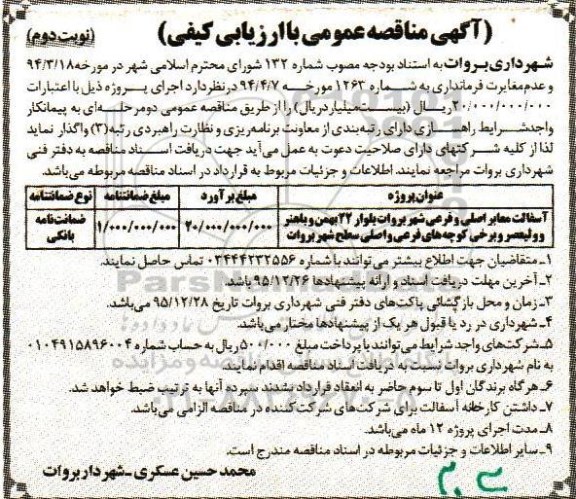 (آگهی مناقصه عمومی با ارزیابی کیفی)
(نوبت دوم)
شهرداری بروات به استناد بودجه مصوب شماره ۱۳۲ شورای محترم اسلامی شهر در مورخه ۹۴/۳/۱۸
و عدم مغایرت فرمانداری به شماره ۱۲۶۳ مورخه ۹۴/۴/۷ در نظر دارد اجرای پروژه ذیل با اعتبارات
۲۰/۰۰۰/۰۰۰/۰۰۰ ریال (بیست میلیارد ریال) را از طریق مناقصه عمومی دو مرحله ای به پیمانکار
واجد شرایط راهسازی دارای رتبه بندی از معاونت برنامه ریزی و نظارت راهبردی رتبه (۳) واگذار نماید
لذا از کلیه شرکتهای دارای صلاحیت دعوت به عمل می آید جهت دریافت اسناد مناقصه به دفتر فنی
شهرداری بروات مراجعه نمایند. اطلاعات و جزئیات مربوط به قرارداد در اسناد مناقصه مربوطه می باشد.
عنوان پروژه مبلغ برآورد مبلغ ضمانتنامه نوع ضمانتنامه
آسفالت معابر اصلی و فرعی شهر بروات بلوار ۲۲ بهمن و باهنر
و ولیعصر و برخی کوچه های فرعی و اصلی سطح شهر بروات
۲۰/۰۰۰/۰۰۰/۰۰۰ ۱/۰۰۰/۰۰۰/۰۰۰ ضمانت نامه
بانکی
۱ـ متقاضیان جهت اطلاع بیشتر می توانند با شماره ۰۳۴۴۴۲۳۲۵۵۶ تماس حاصل نمایند.
۲ـ آخرین مهلت دریافت اسناد و ارائه پیشنهادها ۹۵/۱۲/۲۶ باشد.
۳ـ زمان و محل بازگشائی پاکت های دفتر فنی شهرداری بروات تاریخ ۹۵/۱۲/۲۸ می باشد.
۴ـ شهرداری در رد یا قبول هر یک از پیشنهادها مختار می باشد.
۵ـ شرکت های واجد شرایط می توانند با پرداخت مبلغ ۵۰۰/۰۰۰ ریال به حساب شماره ۰۱۰۴۹۱۵۸۹۶۰۰۴
به نام شهرداری بروات نسبت به دریافت اسناد مناقصه اقدام نمایند.
۶ـ هرگاه برندگان اول تا سوم حاضر به انعقاد قرارداد نشدند سپرده آنها به ترتیب ضبط خواهد شد.
۷ـ داشتن کارخانه آسفالت برای شرکت های شرکت کننده در مناقصه الزامی می باشد.
۸ـ مدت اجرای پروژه ۱۲ ماه می باشد.
۹ـ سایر اطلاعات و جزئیات مربوطه در اسناد مناقصه مندرج است.
محمد حسین عسکری ـ شهردار بروات